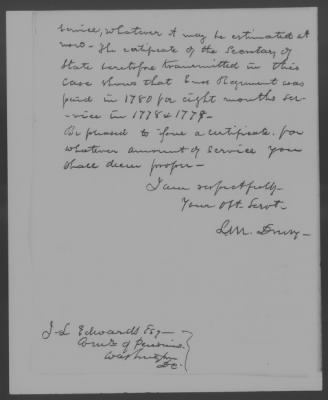 service, whatever it may be estimated at
now - The certificate of the Secretary of
State heretofore transmitted in this
case shows that Enos Regiment was
paid in 1780 for eight months ser-
-vice in 1778 & 1779 -
Be pleased to issue a certificate for
whatever amount of service you
shall deem proper -
I am respectfully
Your Obt. Servt -
J. L. Edwards Esq -
Comr of Pensions
Washington
D.C.